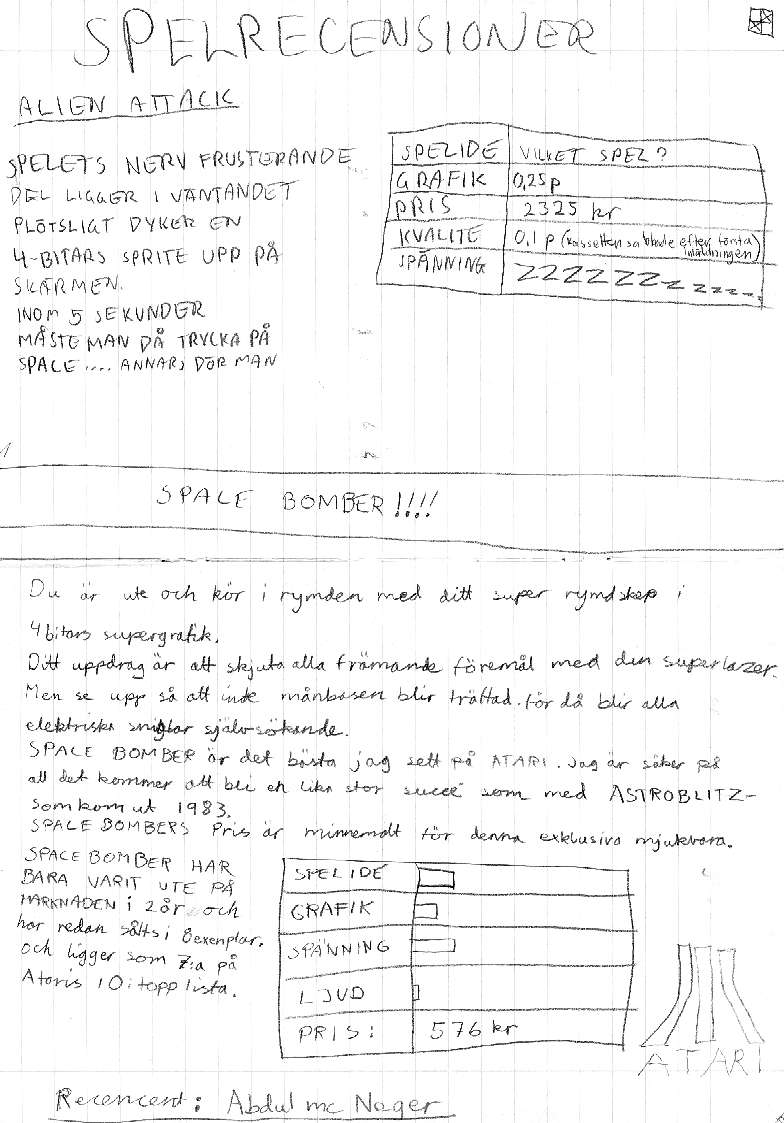 SPELRECENSIONER
ALIEN ATTACK
SPELETS NERV FRUSTERANDE
DEL LIGGER I VÄNTANDET
PLÖTSLIGT DYKER EN
4-BITARS SPRITE UPP PÅ
SKÄRMEN.
INOM 5 SEKUNDER
MÅSTE MAN DÅ TRYCKA PÅ
SPACE .... ANNARS DÖR MAN
SPELIDE VILKET SPEL?
GRAFIK 0,25p
PRIS 2325 kr
KVALITE 0,1 p (kassetten sa blade efter första
inladdningen)
SPÄNNING ZZZZZZzzzzz...
SPACE BOMBER!!!!
Du är ute och kör i rymden med ditt super rymdskep i
4bitars supergrafik.
Ditt uppdrag är att skjuta alla främande föremål med din superlazer.
Men se upp så att inde månbasen blir träffad. för då blir alla
elektriska sniglar självsökande.
SPACE BOMBER är det bästa jag sett på ATARI. Jag är säker på
all det kommer att bli en lika stor succé som med ASTROBLITZ-
som kom ut 1983.
SPACE BOMBERS Pris är minnemalt för denna exklusiva mjukvara.
SPACE BOMBER HAR
BARA VARIT UTE PÅ
MARKNADEN i 2år och
har redan sålts i 8exemplar.
och ligger som 7:a på
Ataris 10i topp lista.
SPELIDE
GRAFIK
SPÄNNING
LJUD
PRIS: 576 kr
ATARI
Recencent: Abdul mc Nager